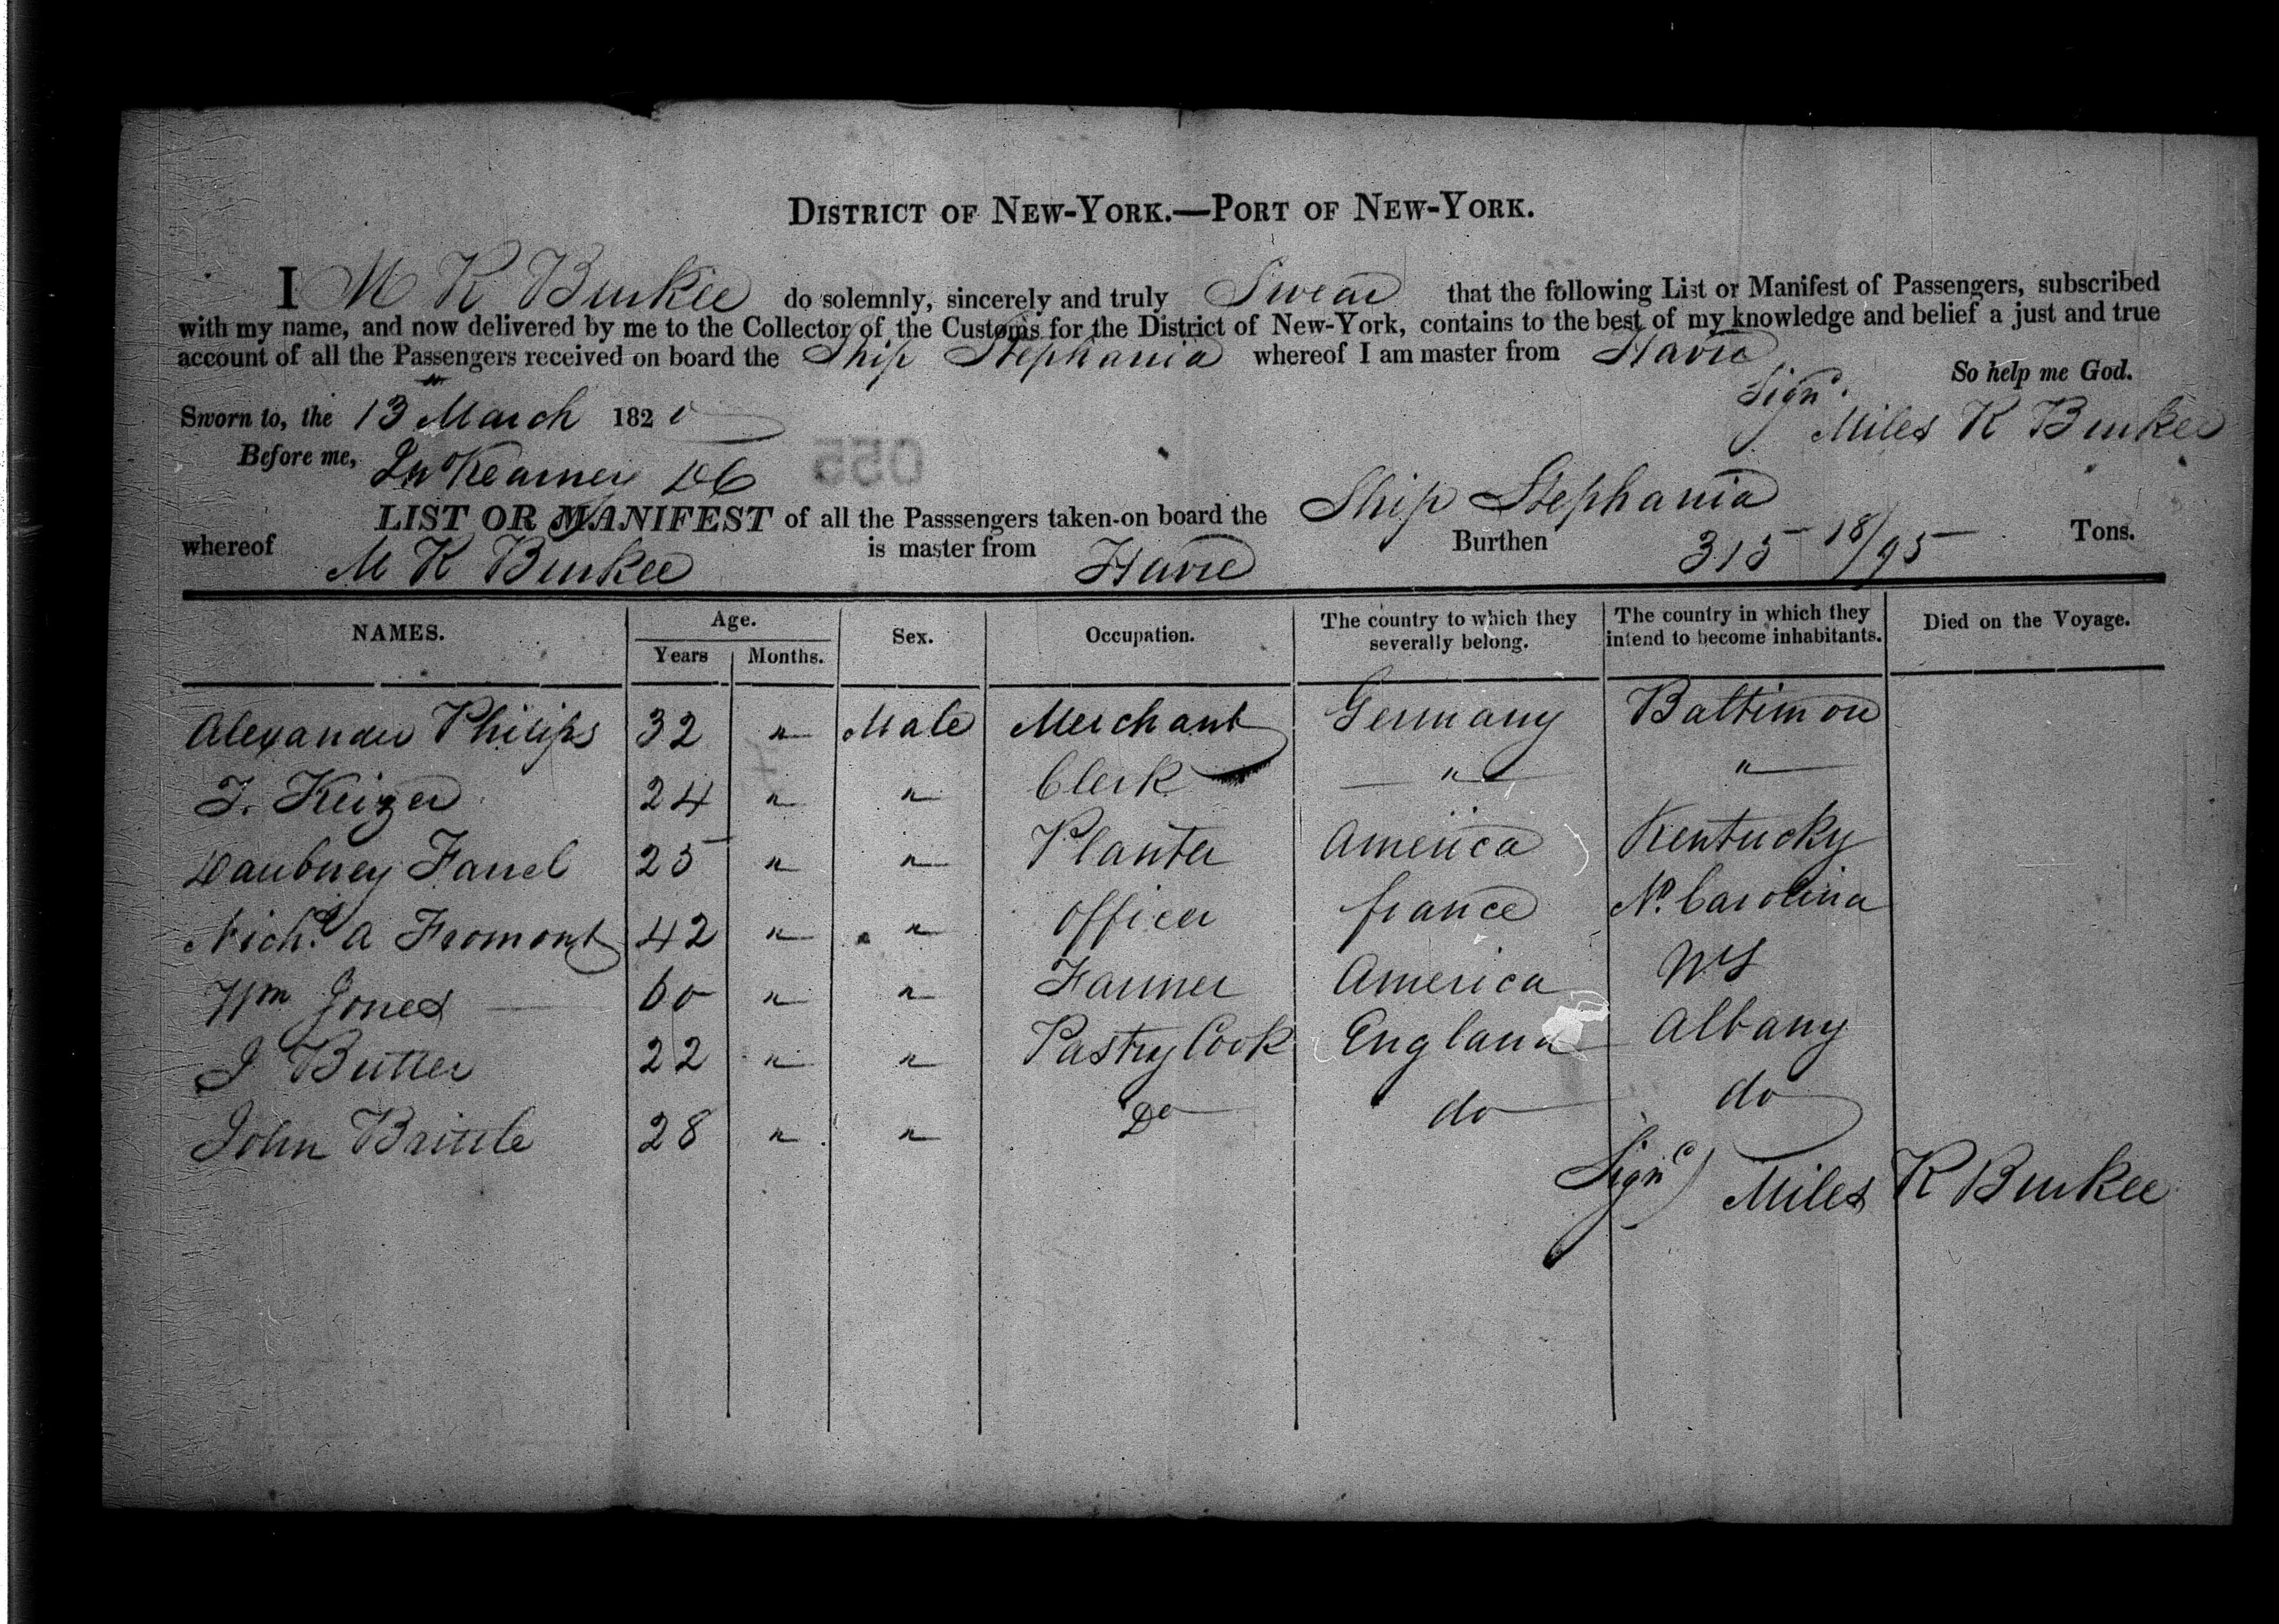 DISTRICT OF NEW-YORK.—PORT OF NEW-YORK.
I M K Burkee do solemnly, sincerely and truly Swear that the following List or Manifest of Passengers, subscribed
with my name, and now delivered by me to the Collector of the Customs for the District of New-York, contains to the best of my knowledge and belief a just and true
account of all the Passengers received on board the Ship Stephania whereof I am master from Havre
So help me God.
Sworn to, the 13 March 1820
Signd. Miles K Burkee
Before me, Kearney
055
LIST OR MANIFEST of all the Passsengers taken-on board the Ship Stephania
whereof M K Burkee is master from Havre Burthen 315 18/95 Tons.
NAMES. Age. Years Months. Sex. Occupation. The country to which they severally belong. The country in which they intend to become inhabitants. Died on the Voyage.
Alexander Philips 32 " Male Merchant Germany Baltimore
Keizer 24 " " Clerk " "
Daubney Farrel 25 " " Planter America Kentucky
Nichs. A Fromont 42 " " Officer france No. Carolina
Wm Jones 60 " " Farmer America
J Butler 22 " " Pastry Cook England Albany
John Brittle 28 " " Do do do
Signd) Miles K Burkee